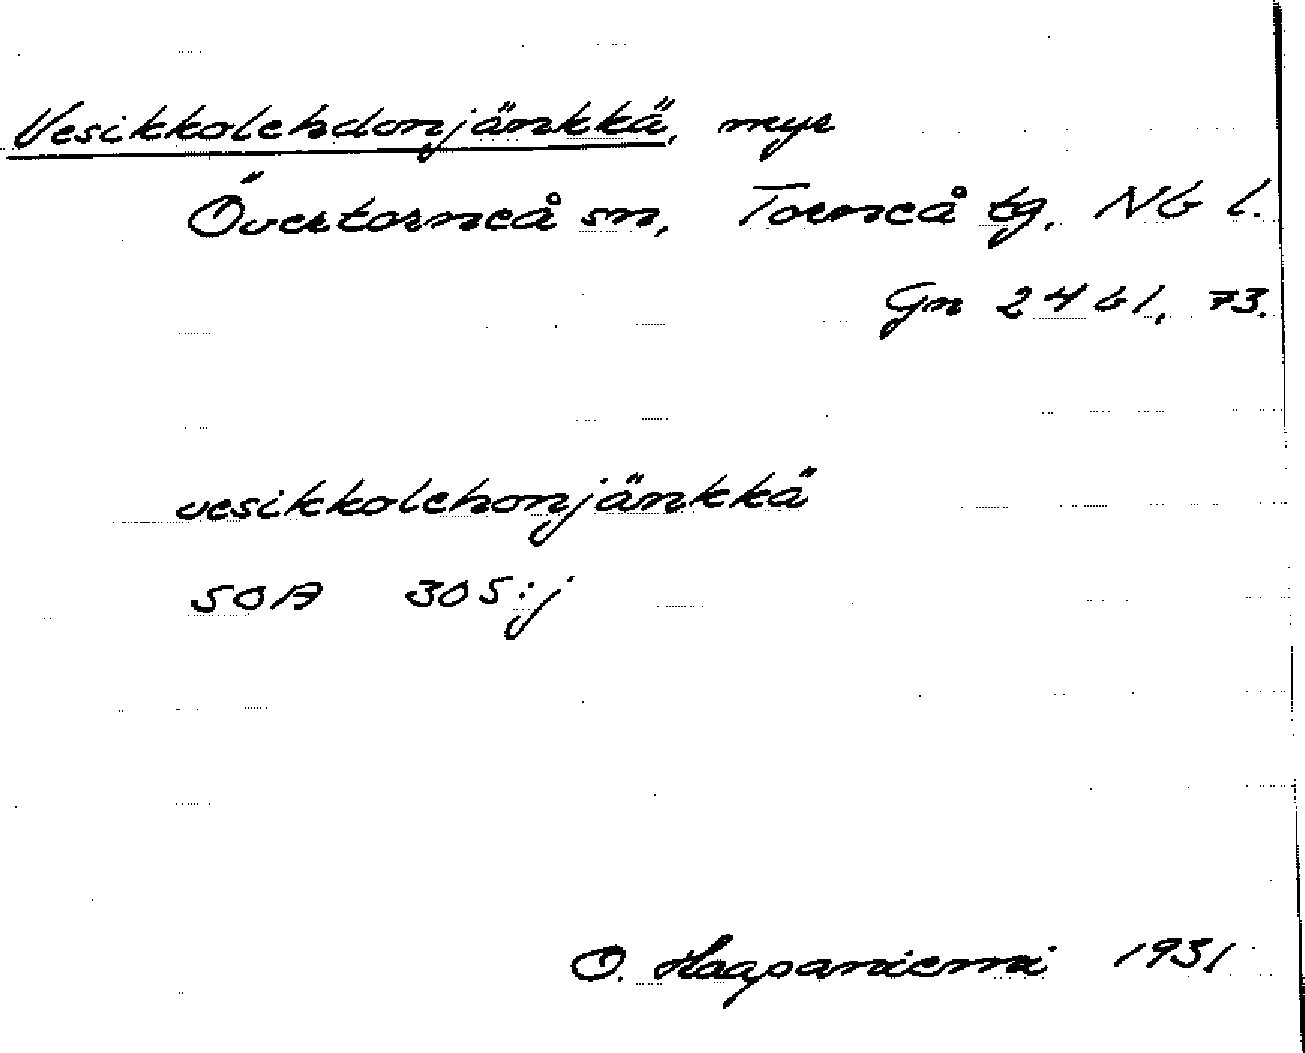 Vesikkolehdonjänkkä, myr
Övertorneå sn, Torneå tg. Nb l.
Gn 2461, 73.
vesikkolehonjänkkä
SOA 305:j
O. Haapaniemi 1931